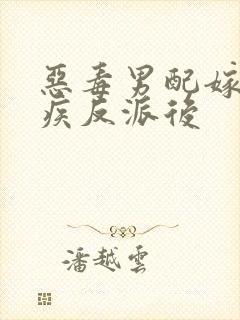 惡毒男配嫁
疾反派後
潘越雲